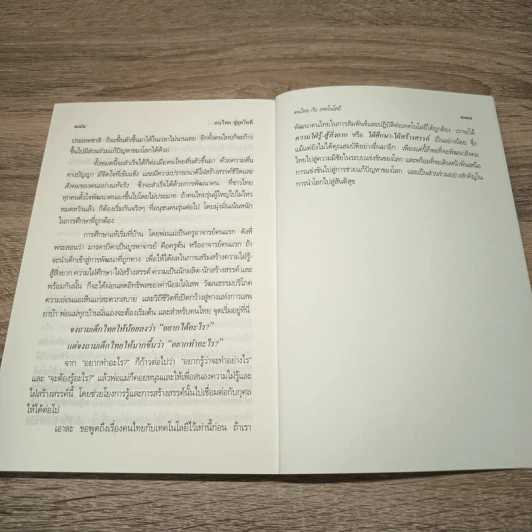 คนไทย สู่ยุคไอที
ประเทศชาติ ก็จะฟื้นตัวขึ้นมาได้ในเวลาไม่นานเลย อีกทั้งคนไทยก็จะก้าว
ขึ้นไปมีส่วนร่วมแก้ปัญหาของโลกได้ด้วย
ทั้งหมดนี้จะสำเร็จได้ก็ต่อเมื่อคนไทยตื่นตัวขึ้นมา ด้วยความตื่น
ทางปัญญา มีจิตใจที่เข้มแข็ง และมีความปรารถนาดีใฝ่สร้างสรรค์ชีวิตและ
สังคมของตนอย่างแท้จริง ซึ่งจะสำเร็จได้ด้วยการพัฒนาคน ที่ชาวไทย
ทุกคนตั้งใจพัฒนาตนเองขึ้นไปโดยไม่ประมาท ถ้าคนไทยรุ่นผู้ใหญ่ไปไม่ไหว
หมดหวังแล้ว ก็ต้องเริ่มกันจริงๆ ที่อนุชนคนรุ่นต่อไป โดยมุ่งเน้นหนัก
ในการศึกษาที่ถูกต้อง
การศึกษาแท้เริ่มที่บ้าน โดยพ่อแม่เป็นครูอาจารย์คนแรก ดังที่
พระสอนว่า มารดาบิดาเป็นบูรพาจารย์ คือครูต้น หรืออาจารย์คนแรก ถ้า
จะนำเด็กเข้าสู่การพัฒนาที่ถูกทาง เพื่อให้ได้ผลในการเสริมสร้างความใฝ่รู้-
สู้สิ่งยาก ความใฝ่ศึกษา-ใฝ่สร้างสรรค์ ความเป็นนักผลิต-นักสร้างสรรค์ และ
พร้อมกันนั้น ก็จะได้ผ่อนลดอิทธิพลของค่านิยมใฝ่เสพ วัฒนธรรมบริโภค
ความอ่อนแอเห็นแก่สะดวกสบาย และวิถีชีวิตที่เปิดกว้างสู่ทางแห่งการเสพ
ยาบ้า พ่อแม่ทุกบ้านมีนเองจะต้องเริ่มต้น และสำหรับคนไทย จุดเริ่มอยู่ที่นี่
จงถามเด็กไทยให้น้อยลงว่า “อยากได้อะไร?”
แต่จงถามเด็กไทยให้มากขึ้นว่า “อยากทำอะไร?”
จาก “อยากทำอะไร?” ก็ก้าวต่อไปว่า “อยากรู้ว่าจะทำอย่างไร”
และ “จะต้องรู้อะไร?” แล้วพ่อแม่ก็คอยหนุนและให้เพื่อสนองความใฝ่รู้และ
ใฝ่สร้างสรรค์นี้ โดยช่วยโยงการรู้และการสร้างสรรค์นั้นไปเชื่อมต่อกับกุศล
ให้ได้ต่อไป
เอาละ ขอพูดถึงเรื่องคนไทยกับเทคโนโลยีไว้เท่านี้ก่อน ถ้าเรา
คนไทย กับ เทคโนโลยี
พัฒนาคนไทยในการสัมพันธ์และปฏิบัติต่อเทคโนโลยีได้ถูกต้อง เราจะได้
ความใฝ่รู้-สู้สิ่งยาก หรือ ใฝ่ศึกษา-ใฝ่สร้างสรรค์ เป็นอย่างน้อย ซึ่ง
แม้แต่ยังไม่ได้คุณสมบัติอย่างอื่นมาอีก เพียงแค่นี้ก็พอที่จะพัฒนาสังคม
ไทยไปสู่ความมีชัยในระบบแข่งขันของโลก และพร้อมที่จะเดินหน้าพ้นเหนือ
การแข่งขันไปสู่การช่วยแก้ปัญหาของโลก และเป็นส่วนร่วมอย่างสำคัญใน
การนำโลกไปสู่สันติสุข